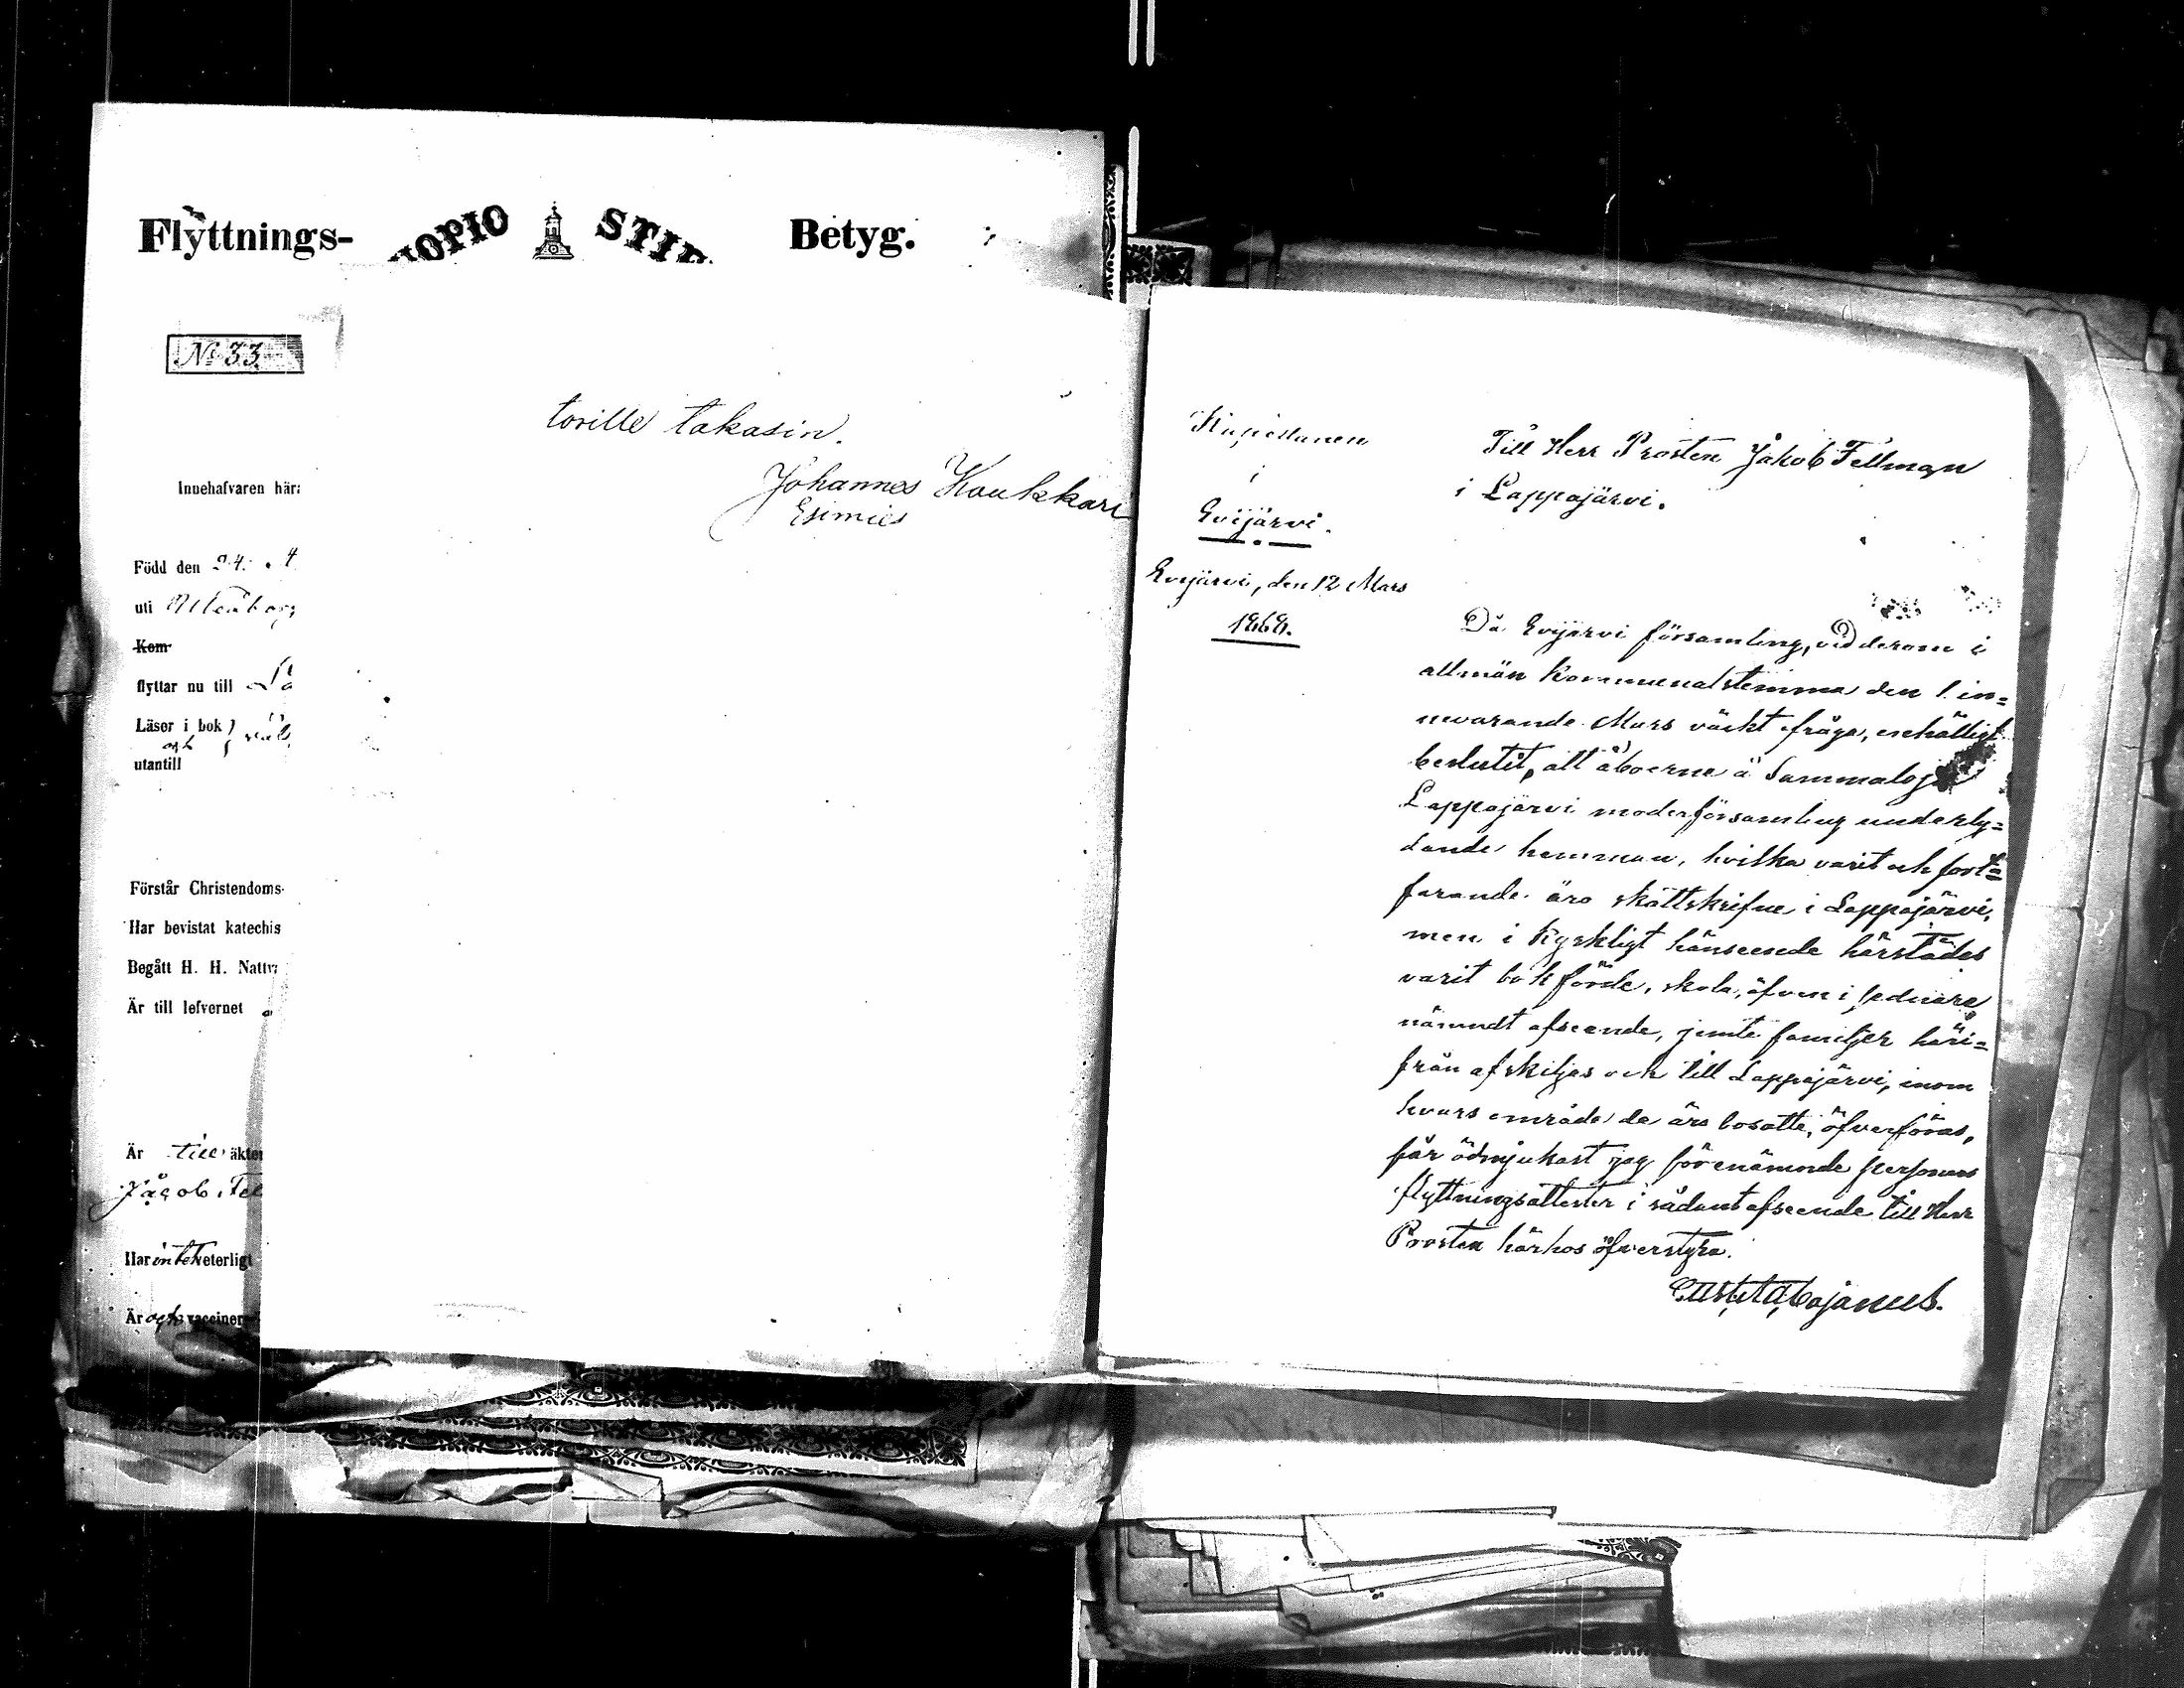 Flyttnings-
UOPIO STIF
Betyg.
No 33.
Innehafvaren här
Född den 24.
uti
Kom
flyttar nu till
Läser i bok
och
utantill
Förstår Christendoms-
Har bevistat katechis
Begått H. H. Nattv
Är till lefvernet
Är till äkten
Jacob Fel
Har intet veterligt
Är och vacciner
torille takasin.
Johannes Koukkari
Esimies
Kapellanen
i
Evijärvi.
Evijärvi, den 12 Mars
1869.
Till Herr Prosten Jakob Fellman
i Lappajärvi.
Då Evijärvi församling, vid derom i
allmän kommunalstämma den 1. in=
nevarande Mars väckt fråga, enhälligt
beslutit, att åboerne å Sammaloj
Lappajärvi moderförsamling underly=
dande hemman, hvilka varit och fort=
farande äro skattskrifne i Lappajärvi,
men i kyrkligt hänseende härstädes
varit bokförde, skola, äfven i sednare
nämndt afseende, jemte familjer häri=
från afskiljas och till Lappajärvi, inom
hvars område de äro bosatte, öfverföras,
får ödmjukast jag förenämnde personers
flyttningsattester i sådant afseende till Herr
Prosten härhos öfverstyra.
Cajanus.